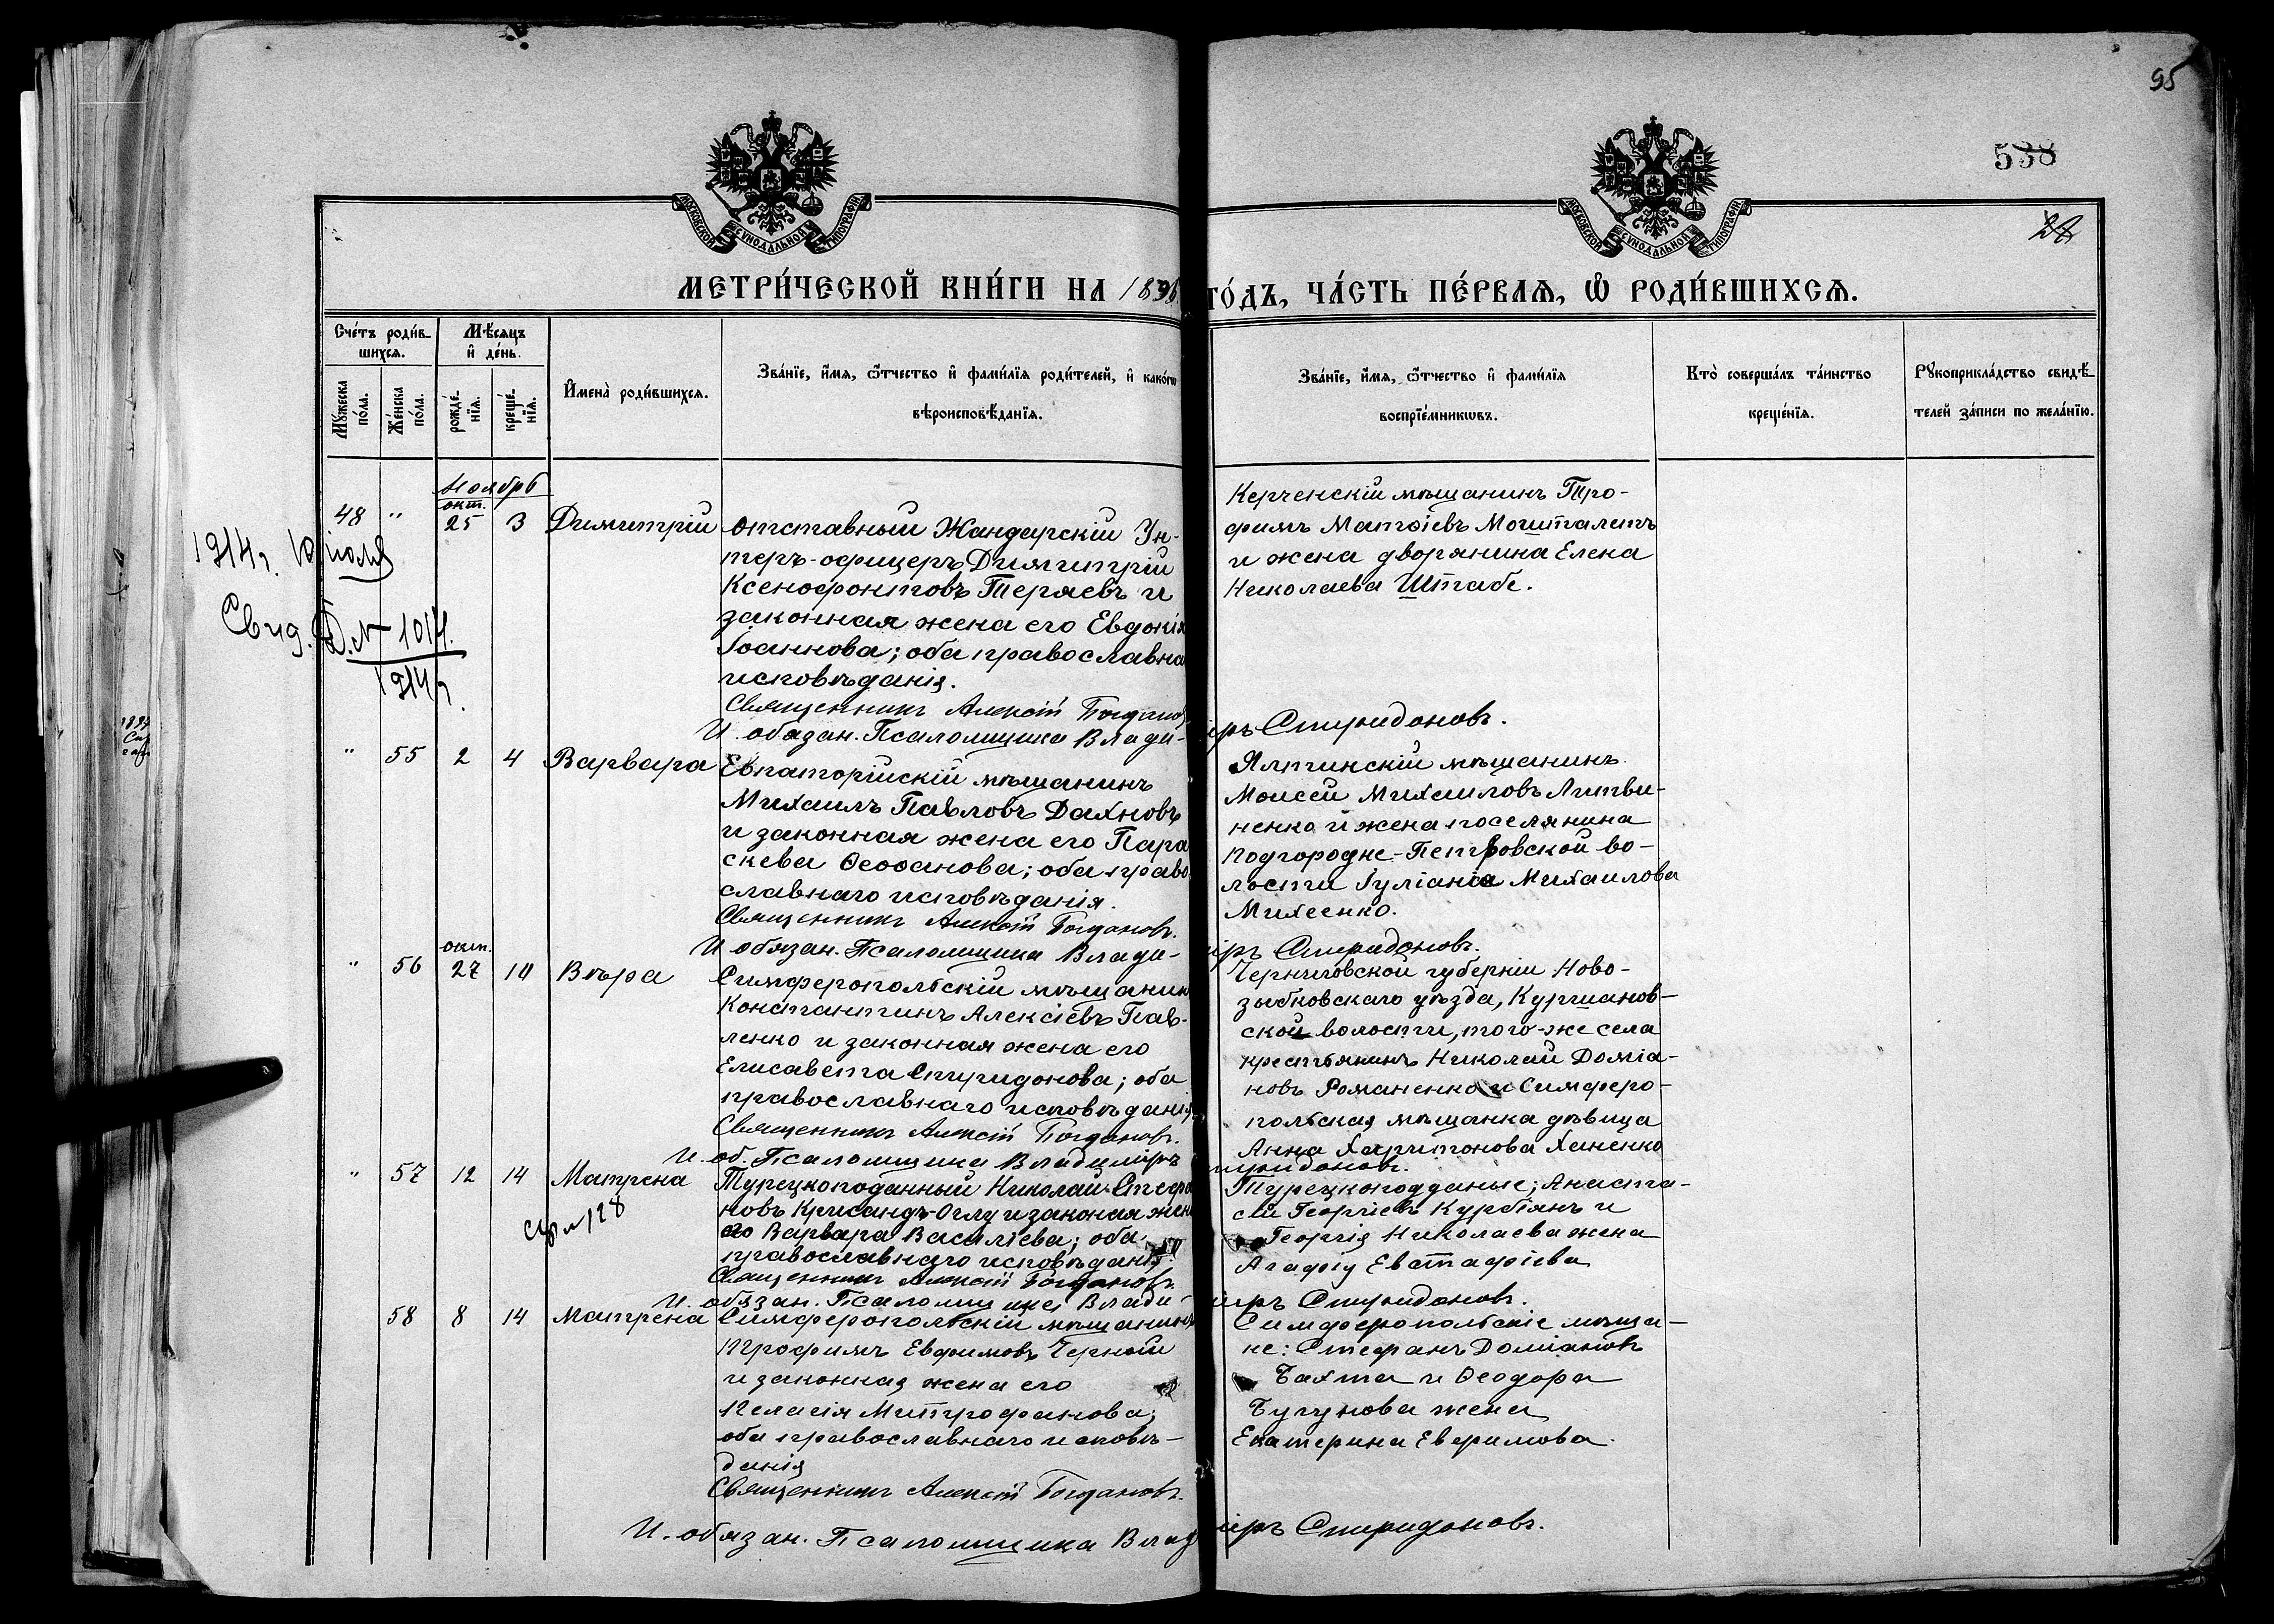 95
538
28
МОСКОВСКОЙ СѴНОДАЛЬНОЙ ТИПОГРАФІИ
МОСКОВСКОЙ СѴНОДАЛЬНОЙ ТИПОГРАФІИ
МЕТРИ́ЧЕСКОЙ КНИ́ГИ НА 1896 ГО́ДЪ, ЧА́СТЬ ПЕ́РВАЯ, Ѡ РОДИ́ВШИХСЯ.
Сче́тъ роди́в-
шихся.
Мѣ́сяцъ
и де́нь.
Мꙋ́жеска по́ла.
Же́нска по́ла.
рожде́нїя.
креще́нїя.
И҆мена̀ роди́вшихся.
Зва́нїе, и҆́мя, ѻ҆́тчество и҆ фами́лїя роди́телей, и҆ како́гѡ
вѣроисповѣ́данїя.
Зва́нїе, и҆́мя, ѻ҆́тчество и҆ фами́лїя
воспрїе́мникѡвъ.
Кто̀ соверша́лъ та́инство
креще́нїя.
Рꙋкоприкла́дство свидѣ́-
телей за́писи по жела́нїю.
Ноябрь
окт.
48 " 25 3 Димитрій
Отставный Жандарскій Ун-
теръ-офицеръ Димитрій
Ксенофонтовъ Теряевъ и
законная жена его Евдокія
Іоаннова; оба православна
исповѣданія.
Священникъ Алексій Богданов
И. обязан. Псаломщика Влади-
іръ Спиридоновъ.
Керченскій мѣщанинъ Тро-
фимъ Матѳіевъ Мошталетъ
и жена дворянина Елена
Николаева Штабе.
1914г. 10 іюля
Свид. Д. № 1014.
1914г.
" 55 2 4 Варвара
Евпаторійскій мѣщанинъ
Михаилъ Павловъ Дахновъ
и законная жена его Пара
скева Ѳеофанова; оба право
славнаго исповѣданія.
Священникъ Алексій Богдановъ.
И обязан. Псаломщика Влади-
іръ Спиридоновъ.
Ялтинскій мѣщанинъ
Моисей Михаиловъ Литви-
ненко и жена поселянина
Подгородне-Петровской во-
лости Іуліанія Михаилова
Михеенко.
окт.
" 56 27 10 Вѣра
Симферопольскій мѣщанин
Константинъ Алексіевъ Пав-
ленко и законная жена его
Елисавета Спиридонова; оба
православнаго исповѣданія
Священникъ Алексій Богдановъ.
И. об. Псаломщика Владиміръ
Спиридоновъ.
Черниговской губерніи Ново-
зыбковскаго уѣзда, Куршанов-
ской волости, того-же села
крестьянинъ Николай Доміа-
новъ Романенко и Симферо-
польская мѣщанка дѣвица
Анна Харитонова Ханенко
" 57 12 14 Матрена
Турецкоподанный Николай Стефа
новъ Крисандъ-Оглу и законая жен
его Варвара Василіева; оба
православнаго исповѣданія.
Священникъ Алексій Богдановъ.
И. обязан. Псаломщика Влади-
іръ Спиридоновъ.
Турецкоподданые; Анаста-
сій Георгіевъ Курбіянъ и
Георгія Николаева жена
Агафія Евстафіева
58 8 14 Матрена
Симферопольскій мѣщанинъ
Трофимъ Евфимовъ Черный
и законная жена его
Келасія Митрофанова;
оба православнаго исповѣ-
данія
Священникъ Алексій Богдановъ.
И. обязан. Псаломщика Влад
іръ Спиридоновъ.
Симферопольскіе мѣща-
не: Стефанъ Доміановъ
Бахта и Ѳеодора
Бугунова жена
Екатерина Евфимова.